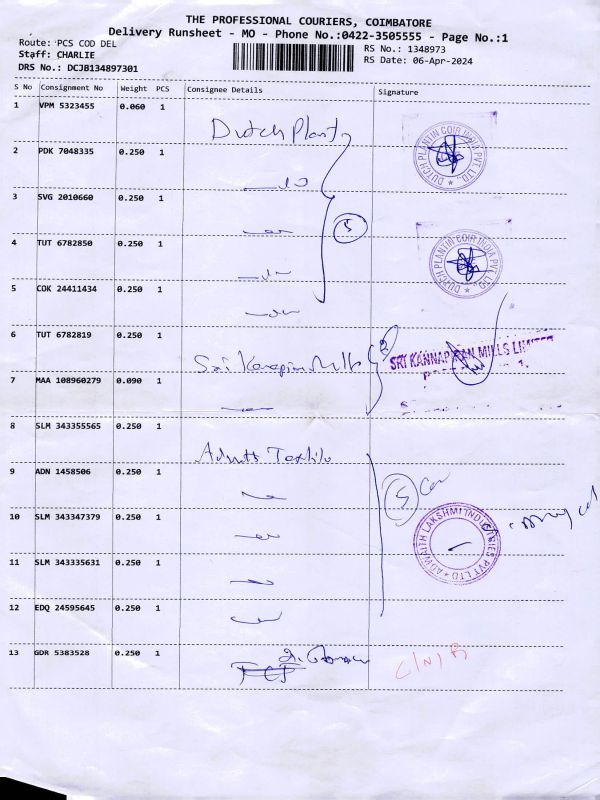 THE PROFESSIONAL COURIERS, COIMBATORE
Delivery Runsheet - MO - Phone No.:0422-3505555 - Page No.:1
Route: PCS COD DEL
RS No.: 1348973
Staff: CHARLIE
RS Date: 06-Apr-2024
DRS No.: DCJB134897301
S No Consignment No Weight PCS Consignee Details Signature
1 VPM 5323455 0.060 1
Dutch Plant
DUTCH PLANTIN COIR INDIA PVT. LTD.
2 PDK 7048335 0.250 1
3 SVG 2010660 0.250 1
5
4 TUT 6782850 0.250 1
DUTCH PLANTIN COIR INDIA PVT. LTD.
5 COK 24411434 0.250 1
6 TUT 6782819 0.250 1
Sri Mills 2 SRI KANNAPIRAN MILLS LIMITED
7 MAA 108960279 0.090 1
8 SLM 343355565 0.250 1
9 ADN 1458506 0.250 1
5
10 SLM 343347379 0.250 1
ADWAITH LAKSHMI INDUSTRIES PVT LTD
11 SLM 343335631 0.250 1
12 EDQ 24595645 0.250 1
13 GDR 5383528 0.250 1
C/N/R